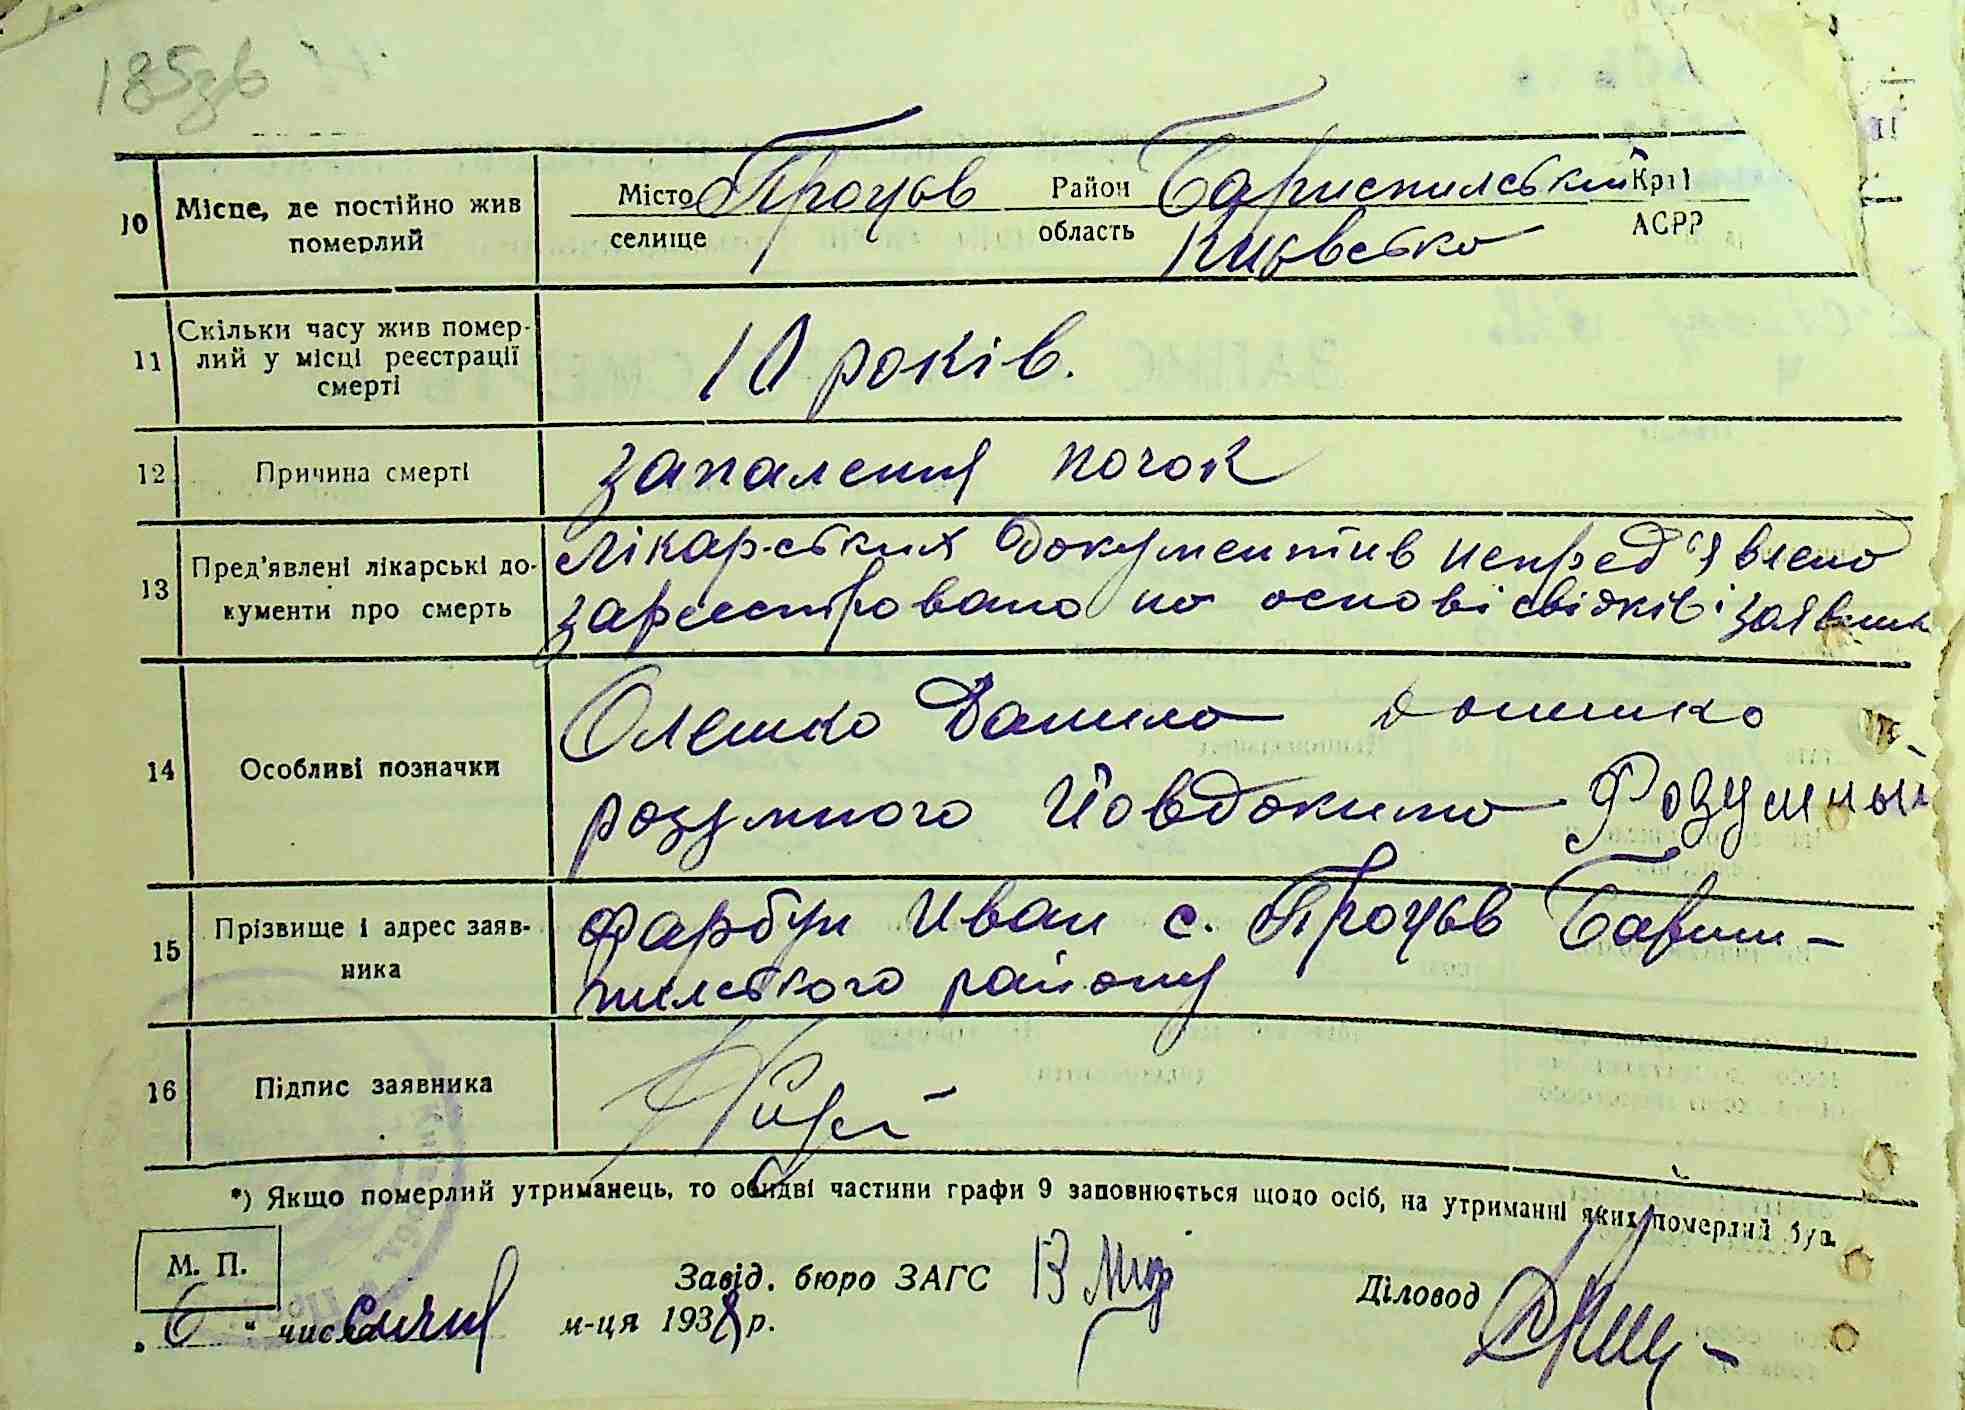 185зв
10 Місце, де постійно жив померлий
Місто Процьв Район Бариспилський Крɪɪ
селище область Київсько АСРР
11 Скільки часу жив помер-
лий у місці реєстрації
смерті
10 років.
12 Причина смерті запалення почок
13 Пред’явлені лікарські до-
кументи про смерть
Лікарських документив непред'явлено
зареєстровано на основі свідків і заявник
14 Особливі позначки
Олешко Данило
розумного Йовдокимо Розумный
15 Прізвище і адрес заяв-
ника
Фарбун Иван с. Процьв Бариш-
пилского району
16 Підпис заявника
*) Якщо померлий утриманець, то обидві частини графи 9 заповнюється щодо осіб, на утриманні яких померлий був.
М. П.
Завід. бюро ЗАГС
Діловод
„6“ числа січня м-ця 1938 р.